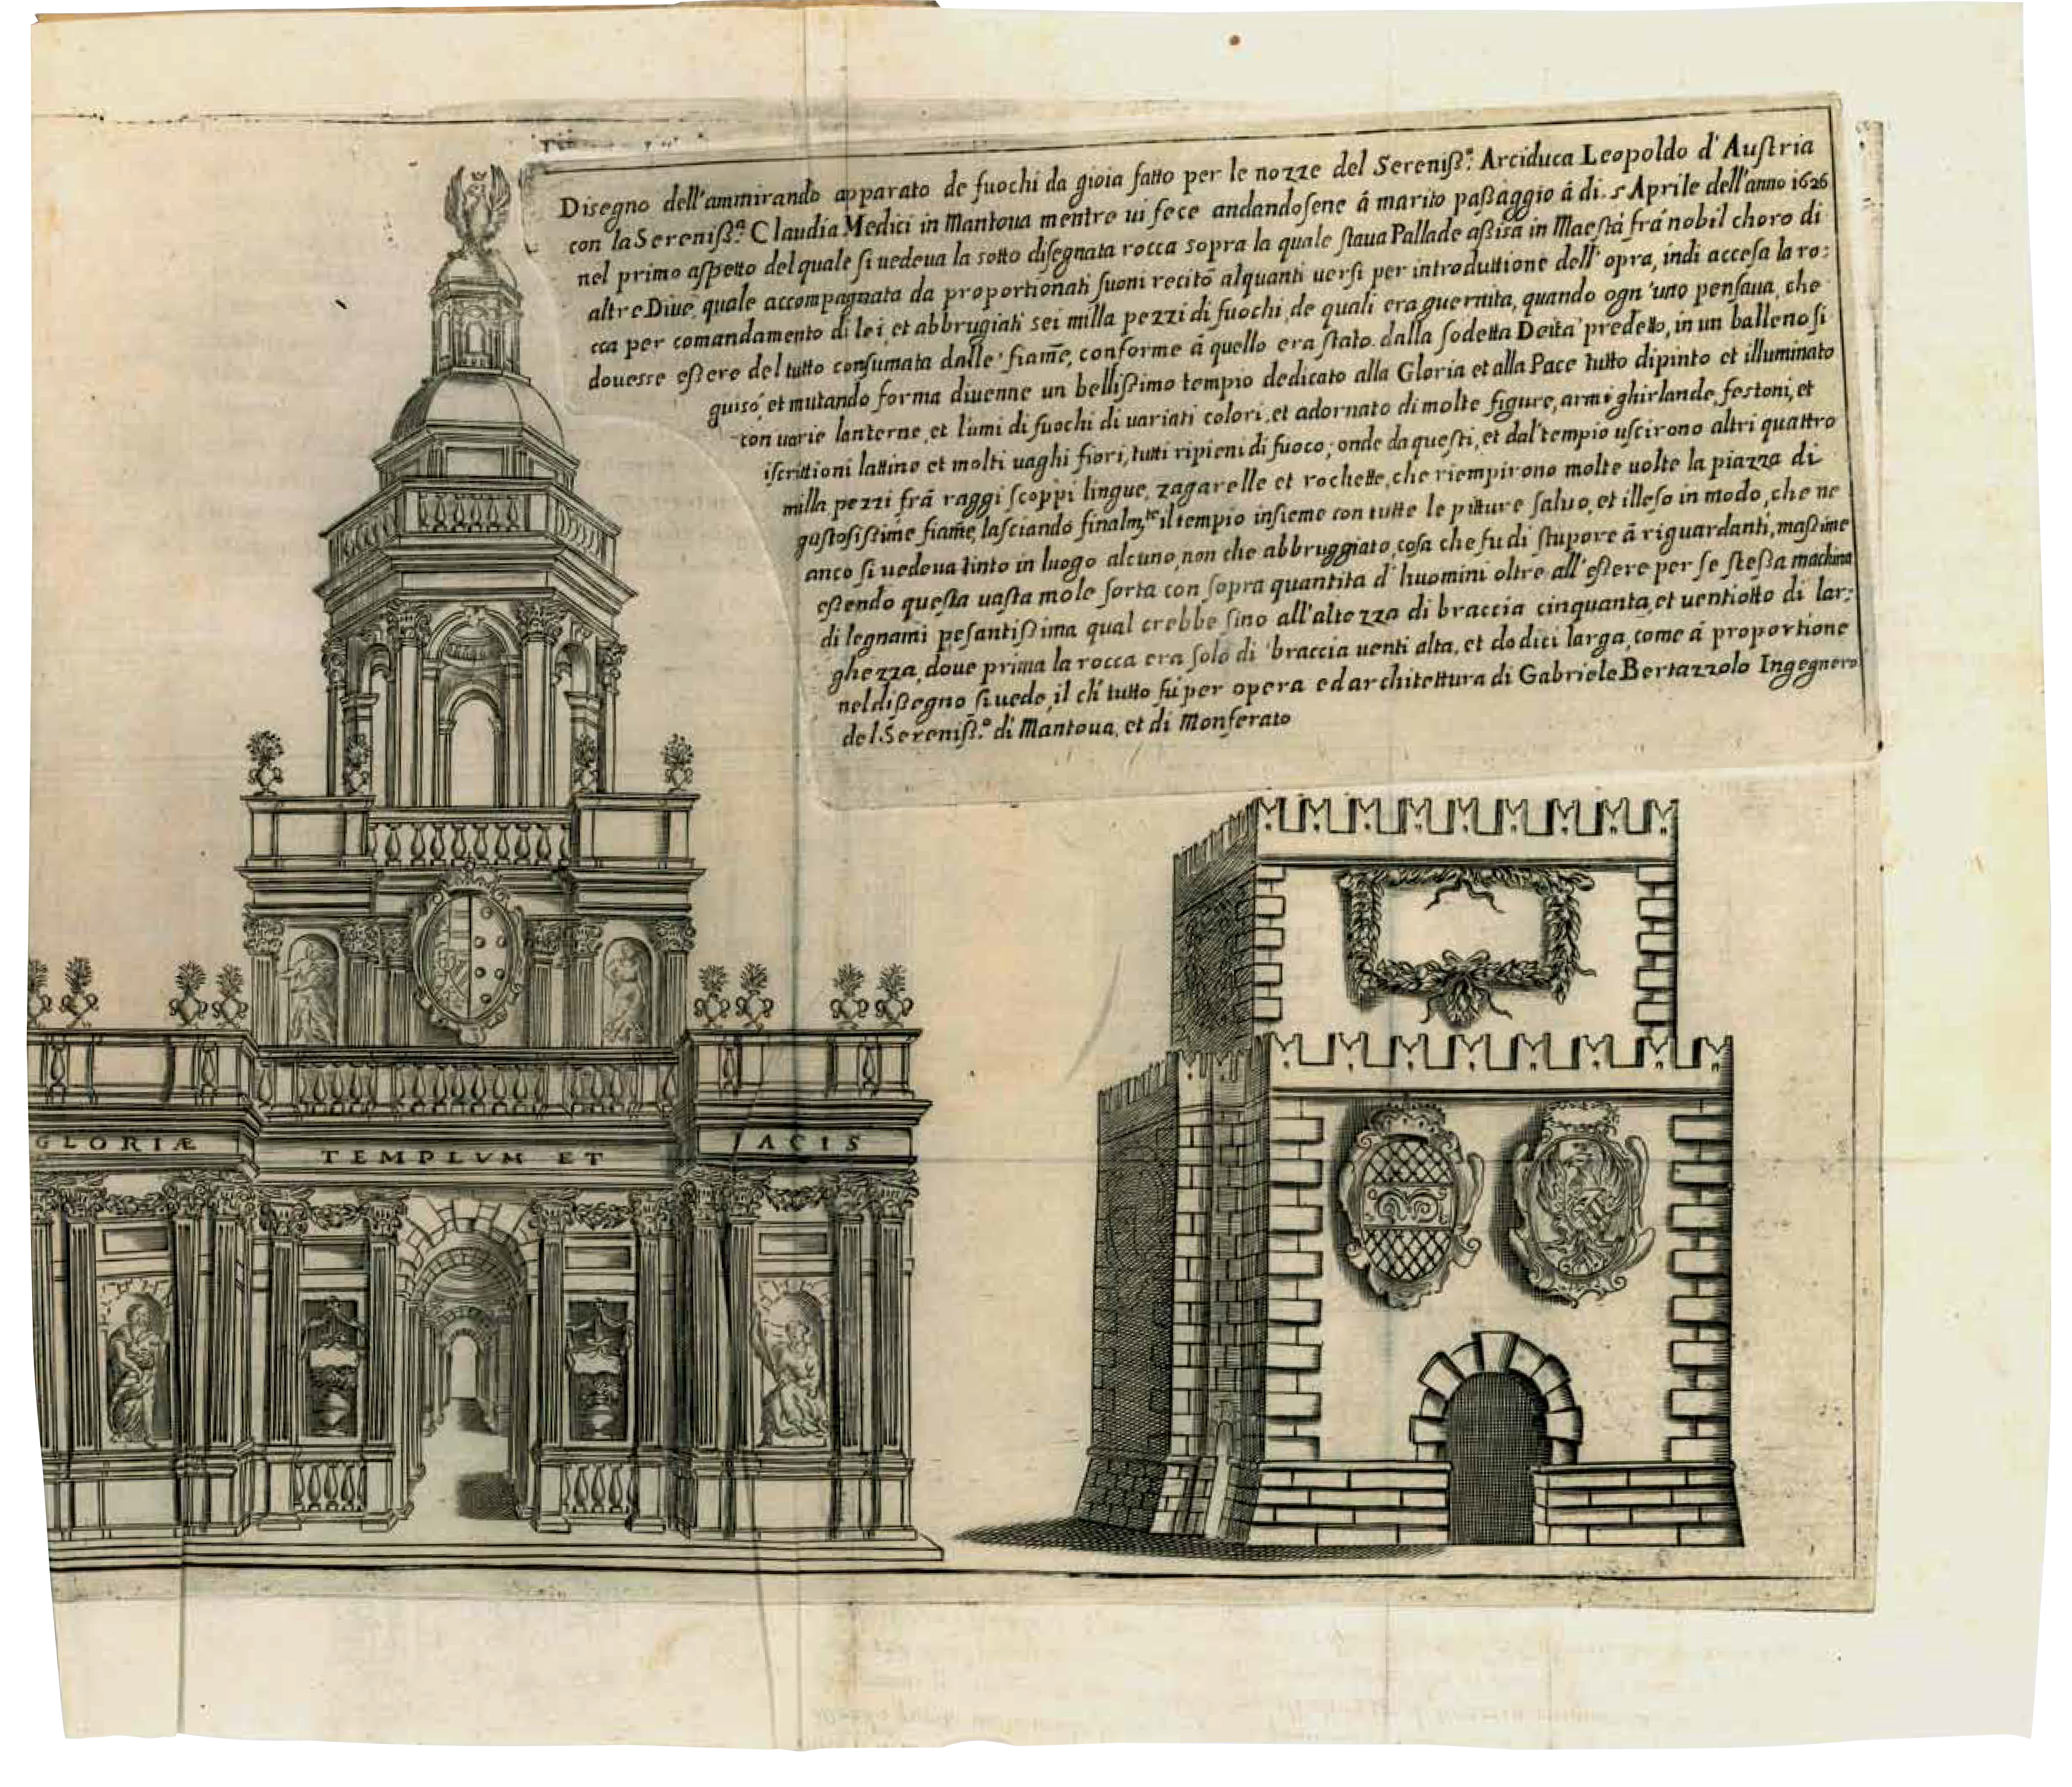 Disegno dell'ammirando apparato de fuochi da gioia fatto per le nozze del Sereniß.º Arciduca Leopoldo d'Auſtria
con la Sereniß.ª Claudia Medici in Mantoua mentre ui fece andandoſene á marito paßaggio á di. 5 Aprile dell'anno 1626
nel primo aſpetto del quale ſi uedeua la sotto diſegnata rocca sopra la quale ſtaua Pallade aßisa in Maeſtá frá nobil choro di
altre Diue, quale accompagnata da proportionati ſuoni recitò alquanti uerſi per introduttione dell'opra, indi acceſa la ro:
cca per comandamento di lei, et abbrugiati sei milla pezzi di fuochi, de quali era guernita, quando ogn'uno penſaua, che
doueſſe eßere del tutto conſumata dalle fiam̃e, conforme á quello era ſtato dalla ſodetta Deità predetto, in un balleno ſi
guisó, et mutando forma diuenne un bellißimo tempio dedicato alla Gloria et alla Pace tutto dipinto et illuminato
con uarie lanterne, et lumi di fuochi di uariati colori, et adornato di molte figure, armi ghirlande, feſtoni, et
iſcrittioni lattine et molti uaghi fiori, tutti ripieni di fuoco; onde da queſti, et dal tempio uſcirono altri quattro
milla pezzi frá raggi ſcoppi lingue, zagarelle et rochette, che riempirono molte uolte la piazza di
guſtoſiſsime fiam̃e, laſciando finalm.te il tempio inſieme con tutte le pitture ſaluo, et illeſo in modo, che ne
anco ſi uedeua tinto in luogo alcuno, non che abbruggiato, coſa che fu di ſtupore á riguardanti, maßime
eßendo queſta uaſta mole ſorta con ſopra quantita d'huomini oltre all'eßere per ſe ſteßa machina
di legnami peſantißima qual crebbe ſino all'altezza di braccia cinquanta, et uentiotto di lar:
ghezza, doue prima la rocca era ſolo di braccia uenti alta, et dodici larga, come á proportione
nel dißegno ſi uede, il ch' tutto fu per opera ed architettura di Gabriele Bertazzolo Ingegnero
del Sereniß.º di Mantoua, et di Monferato
GLORIÆ
TEMPLVM ET
ACIS